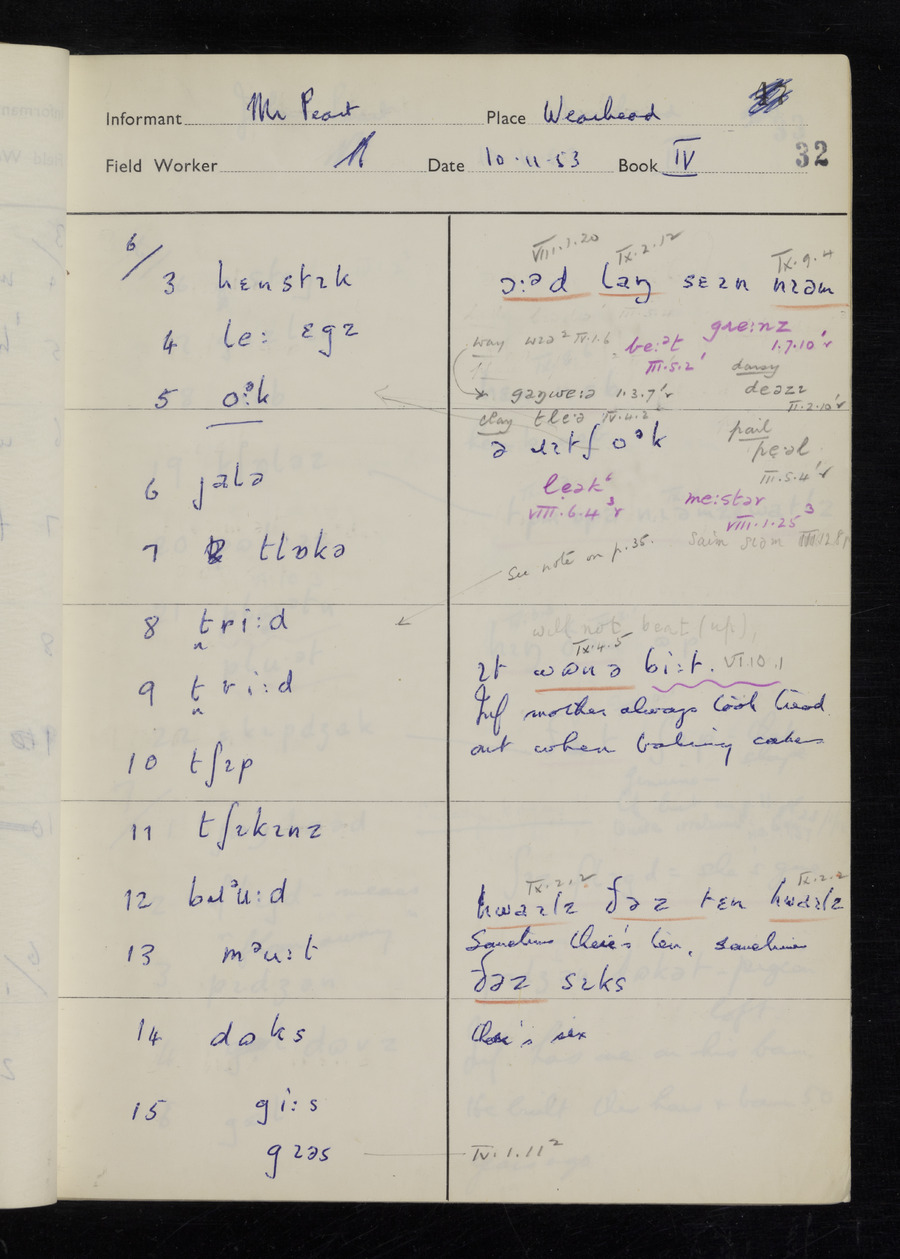 Informant Mr Peart Place Wearhead
Field Worker Date 10.11.53 Book IV
32
6/
VIII.1.20 IX.2.12 IX.9.4
3 hɛnstɪk ɔ:əd laŋ sɛɪn nɪəm
4 le: ɛgz
gre:nz
way wɪə² IV.1.6 be:ət 1.7.10'r
III.5.2'
5 oək gaŋwe:ə 1.3.7'r deəzɪ
II.2.10'r
clay tleə IV.4.2
ə ɹɪtʃ oək pail
peəl
III.5.4'r
6 jələ leək⁶ me:stər
VIII.6.4³r VIII.1.25³
7 tlɒkə See note on p.35.
8 tri:d will not beat (up),
IX.4.5
ɪt wɒnə bi:t. VI.10.1
9 tri:d Inf mother always took tread
out when baking cakes
10 tʃɪp
11 tʃɪkɪnz
IX.2.2 IX.2.2
12 bɹəu:d hwaɪlz ðəz tɛn hwaɪlz
13 məu:t Sometimes there's ten, sometimes
ðəz sɪks
14 dɒks there's six
15 gi:s
gɪəs IV.1.11²